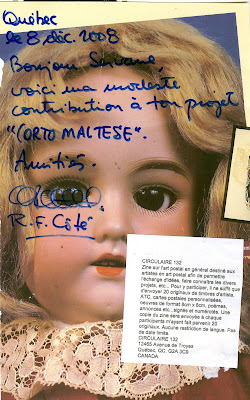 Québec
le 8 déc. 2008
Bonjour
voici ma modeste
contribution à ton projet
"CORTO MALTESE".
Amitiés.
R.F. Côté
CIRCULAIRE 132
Zine sur l'art postal en général destiné aux
artistes en art postal afin de permettre
l'échange d'idées, faire connaître les divers
projets, etc... Pour y participer, il ne suffit que
d'envoyer 20 originaux de timbres d'artiste,
ATC, cartes postales personnalisées,
oeuvres de format 8cm x 8cm, poèmes,
annonces etc...signés et numérotés. Une
copie du zine sera envoyée à chaque
participants m'ayant fait parvenir 20
originaux. Aucune restriction de langue. Pas
de date limite.
CIRCULAIRE 132
12465 Avenue de Troyes
Québec, QC, G2A 3C9
CANADA